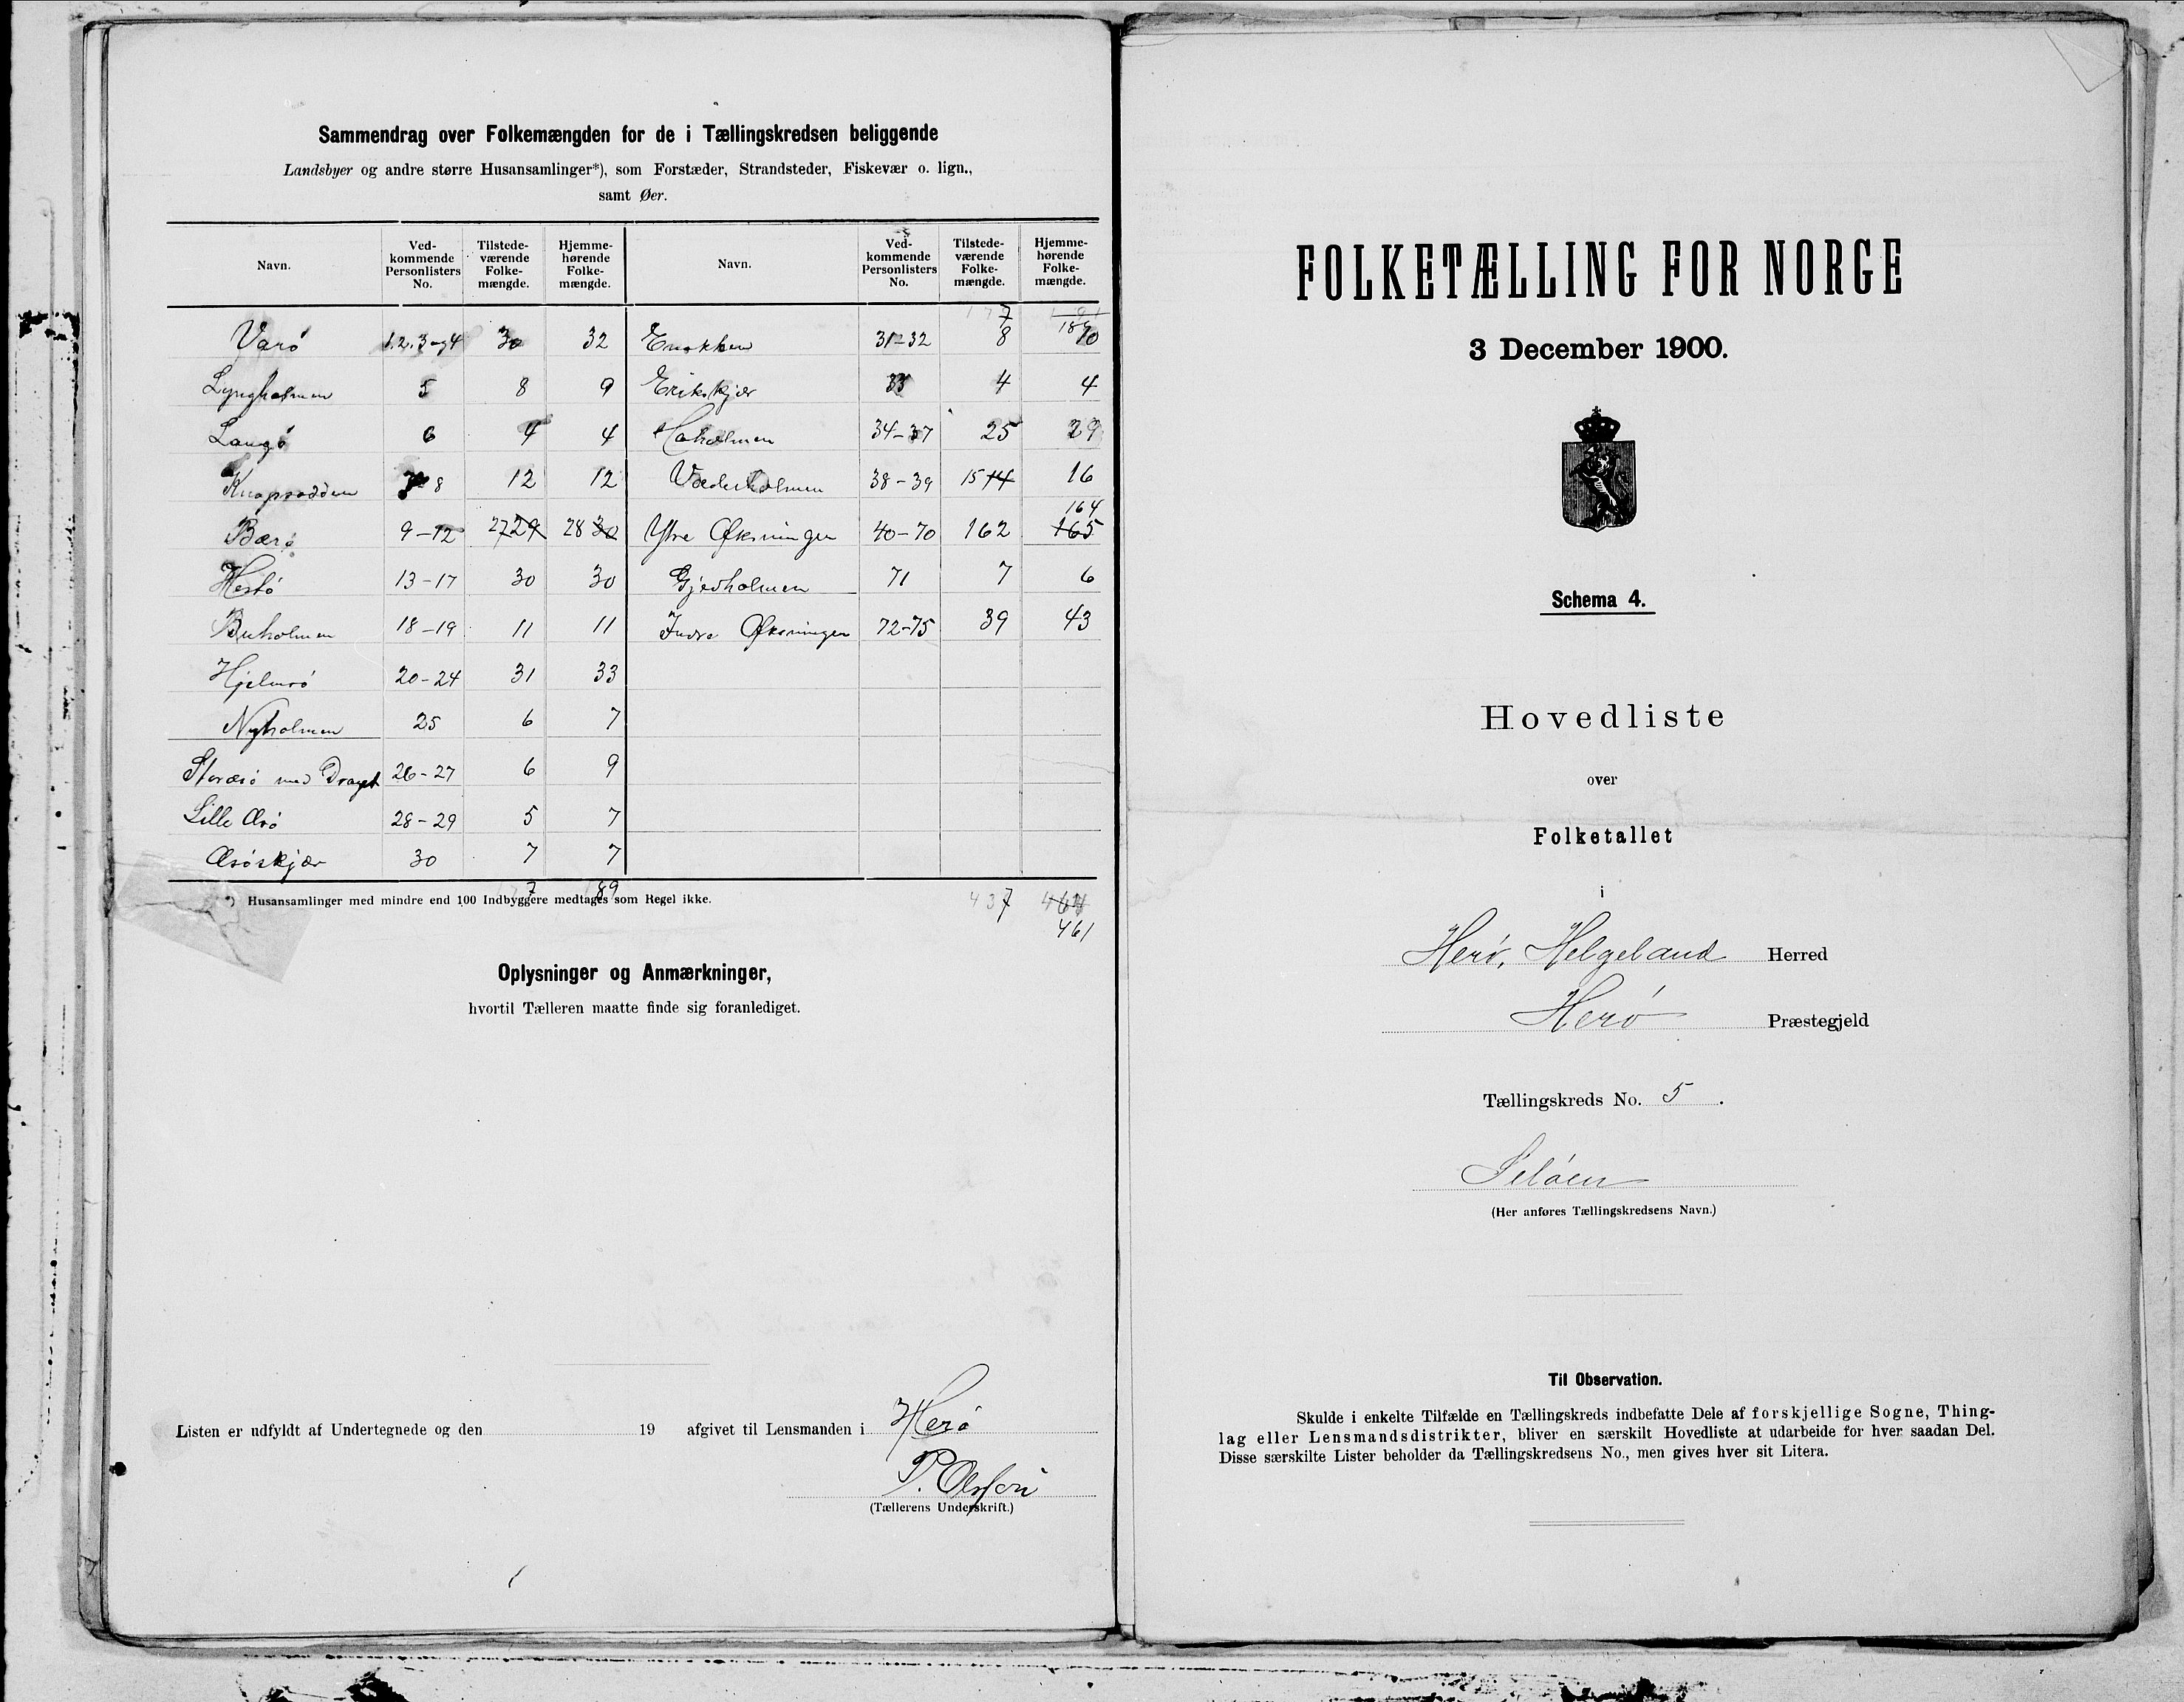 Sammendrag over Folkemængden for de i Tællingskredsen beliggende
Landsbyer og andre større Husansamlinger*), som Forstæder, Strandsteder, Fiskevær o. lign.,
samt Øer.
Navn. Ved-kommende Personlisters No. Tilstede-værende Folke-mængde. Hjemme-hørende Folke-mængde. Navn. Ved-kommende Personlisters No. Tilstede-værende Folke-mængde. Hjemme-hørende Folke-mængde.
177 191
189
Varø 1.2.3-og4 30 32 31-32 8 10
Lyngholmen 5 8 9 Erikskjær 33 4 4
Langø 6 4 4 34-37 25 29
Knapsodden 7-8 12 12 Væderholmen 38-39 15 14 16
164
Bærø 9-12 27 29 28 30 Ytre Øksningen 40-70 162 165
Hestø 13-17 30 30 Gjedholmen 71 7 6
Buholmen 18-19 11 11 Indre Øksningen 72-75 39 43
Hjelmsø 20-24 31 33
Nyholmen 25 6 7
med Draget 26-27 6 9
Lille 28-29 5 7
30 7 7
*) Husansamlinger med mindre end 100 Indbyggere medtages som Regel ikke.
7 89 437 464
461
Oplysninger og Anmærkninger,
hvortil Tælleren maatte finde sig foranlediget.
Listen er udfyldt af Undertegnede og den 19 afgivet til Lensmanden i Herø
P. Olsson
(Tællerens Underskrift.)
FOLKETÆLLING FOR NORGE
3 December 1900.
Schema 4.
Hovedliste
over
Folketallet
i
Herø, Helgeland Herred
Herø Præstegjeld
Tællingskreds No. 5.
Seløen
(Her anføres Tællingskredsens Navn.)
Til Observation.
Skulde i enkelte Tilfælde en Tællingskreds indbefatte Dele af forskjellige Sogne, Thing-
lag eller Lensmandsdistrikter, bliver en særskilt Hovedliste at udarbeide for hver saadan Del.
Disse særskilte Lister beholder da Tællingskredsens No., men gives hver sit Litera.